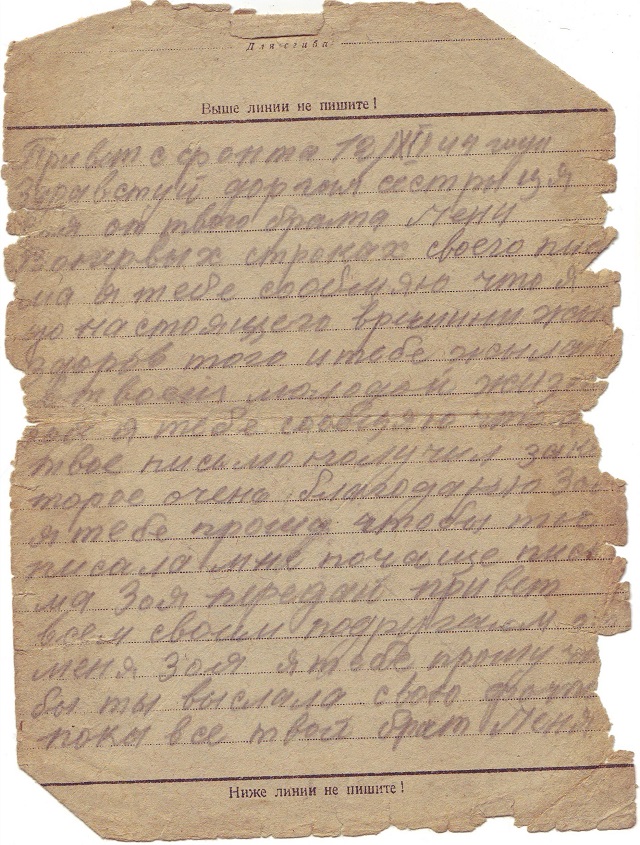 Для сгиба
Выше линии не пишите!
Привет с фронта 12/XII 44 года
Здравствуй дорогая сестрица
от твоего брата Мени
В первых строках своего пис
ма я тебе сообщяю что я
до настоящего времини
здоров того и тебе жылаю
в твоей молодой жизн
я тебе сообщяю что
твое письмо получил за ко
торое очень благодарю Зоя
я тебе прошу чтобы ты
писала мне почаще пис
ма Зоя передай привет
всем своим подругам от
меня Зоя я тебе прошу что
бы ты выслала свою
пока все твой брат Меня
Ниже линии не пишите!